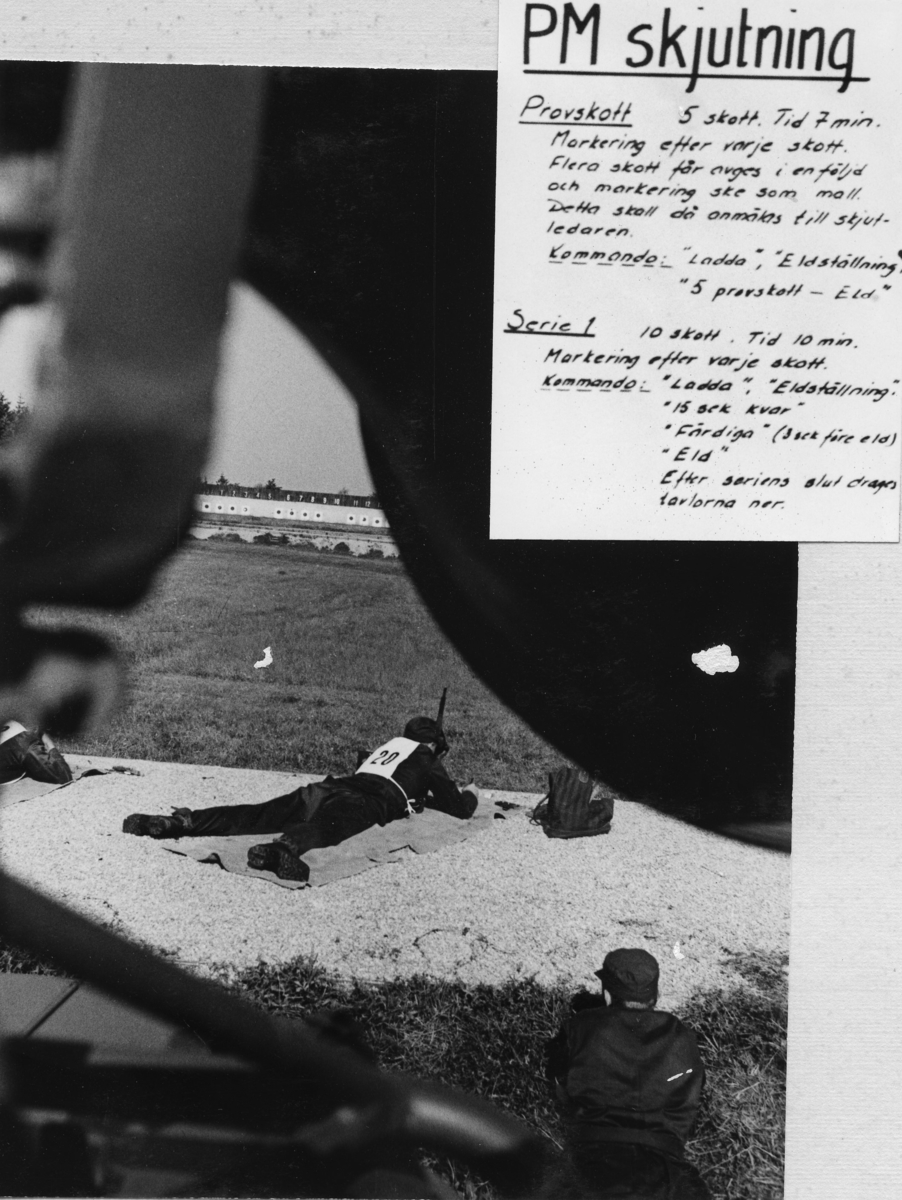 PM skjutning
Provskott 5 skott. Tid 7 min.
Markering efter varje skott.
Flera skott får avges i en följd
och markering ske som mall.
Detta skall då anmälas till skjut-
ledaren.
Kommando: "Ladda", "Eldställning".
"5 provskott – Eld"
Serie 1 10 skott. Tid 10 min.
Markering efter varje skott.
Kommando: "Ladda", "Eldställning".
"15 sek kvar"
"Färdiga" (3 sek före eld)
"Eld"
Efter seriens slut drages
tavlorna ner.
20